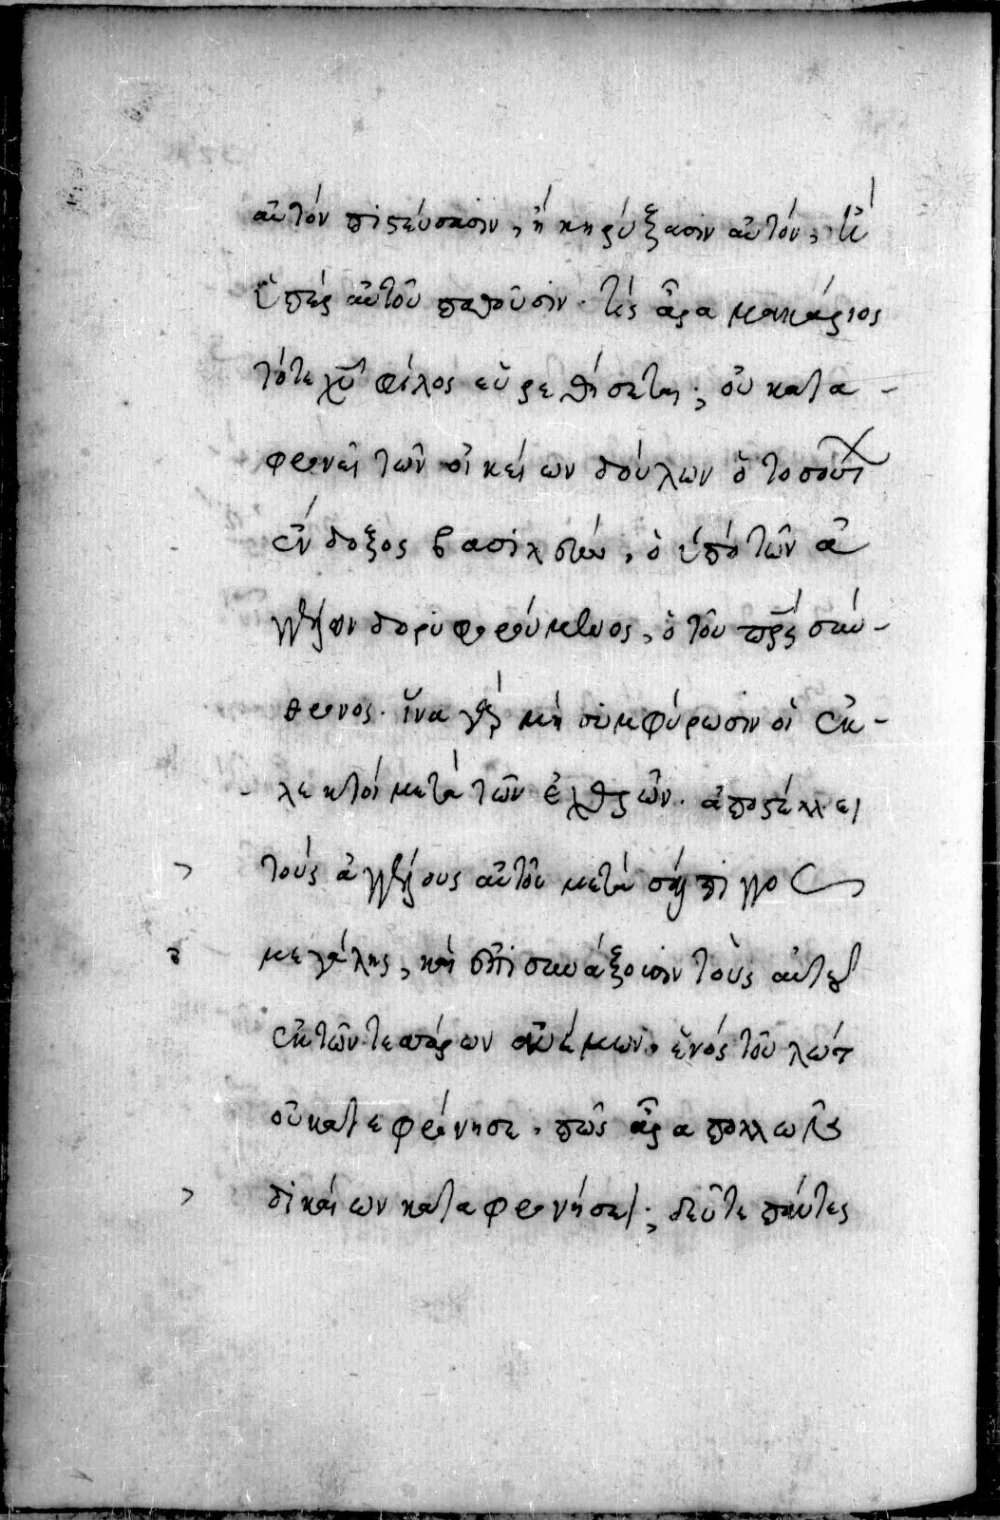 αὐτόν πιστεύσασιν, ἢ κηρύξασιν αὐτόν, ἢ
ὑπὲρ αὐτοῦ παθοῦσιν· τίς ἆρα μακάριος
τότε χῦ φίλος εὑρεθήσεται; οὐ κατα-
φρονεῖ τῶν οἰκείων δούλων ὁ τοσοῦτ
ἔνδοξος βασιλεύς, ὁ ὑπὸ τῶν ἀ
γγέλων δορυφορούμενος, ὁ τοῦ πρς σύν-
θρονος· ἵνα γὰρ μὴ συμφύρωσιν οἱ ἐκ-
λεκτοὶ μετὰ τῶν ἐχθρῶν· ἀποστέλλει
τοὺς ἀγγέλους αὐτοῦ μετὰ σάλπιγγος
μεγάλης, καὶ ἐπισυνάξουσιν τοὺς αὐτοῦ
ἐκ τῶν τεσσάρων ἀνέμων, ἑνός τοῦ λώτ
οὐ κατεφρόνησε, πῶς ἆρα πολλῶν
δικαίων καταφρονήσει; δεῦτε πάντες